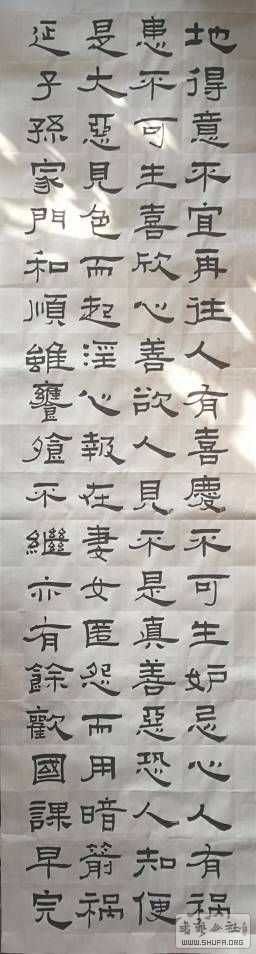 地得意不宜再往人有喜慶不可生妒忌心人有禍
患不可生喜欣心善欲人見不是真善惡恐人知便
是大惡見色而起淫心報在妻女匿怨而用暗箭禍
延子孫家門和順雖饔飧不繼亦有餘歡國課早完
公社
WWW.SHUFA.ORG